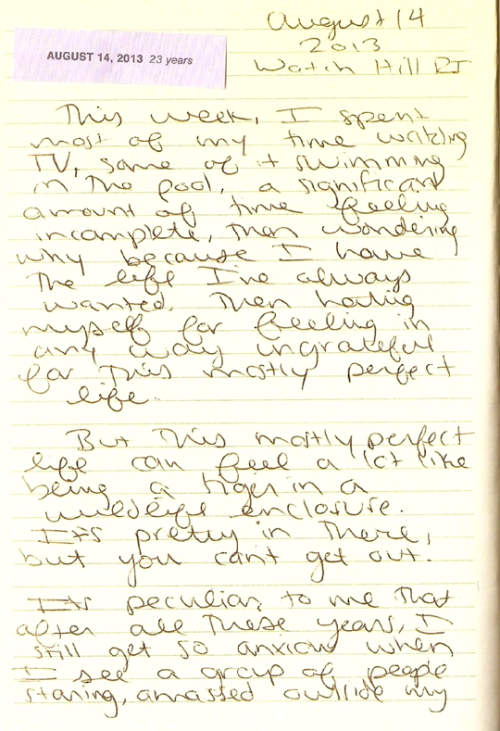 August 14
2013
Watch Hill RI
AUGUST 14, 2013 23 years
This week, I spent
most of my time watching
TV, some of it swimming
in the pool, a significant
amount of time feeling
incomplete, then wondering
why because I have
the life I've always
wanted. Then hating
myself for feeling in
any way ungrateful
for this mostly perfect
life.
But this mostly perfect
life can feel a lot like
being a tiger in a
wildlife enclosure.
It's pretty in there,
but you can't get out.
It's peculiar to me that
after all these years, I
still get so anxious when
I see a group of people
staring, amassed outside my